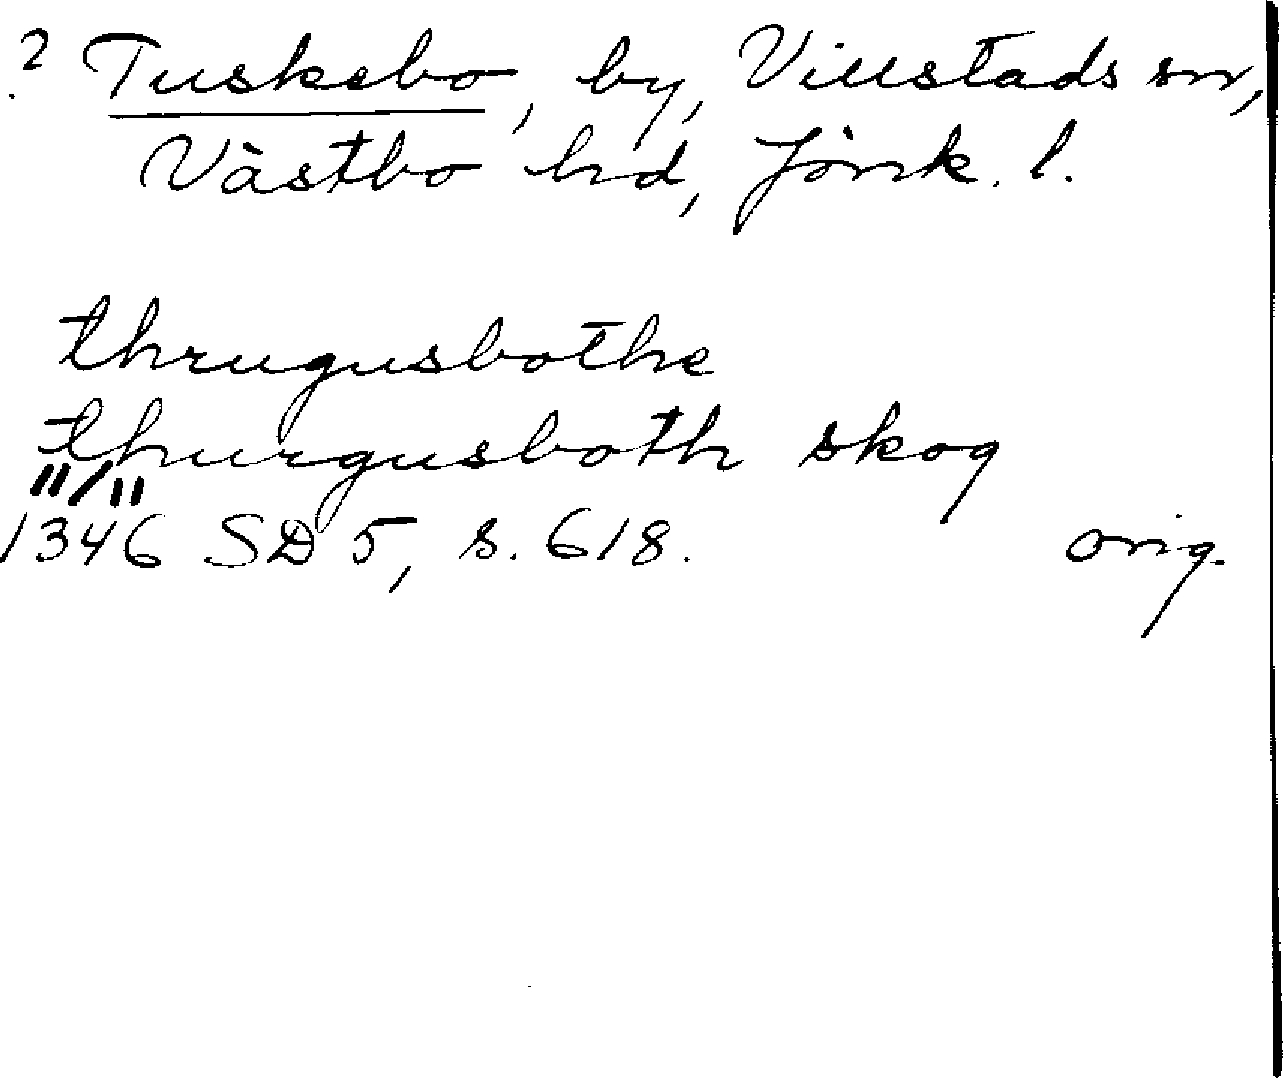 ? Tuskebo, by, Villstads sn,
Västbo hd, Jönk. l.
thrugusbothe
thurgusboth skog
11/11
1346 SD 5, s. 618. orig.